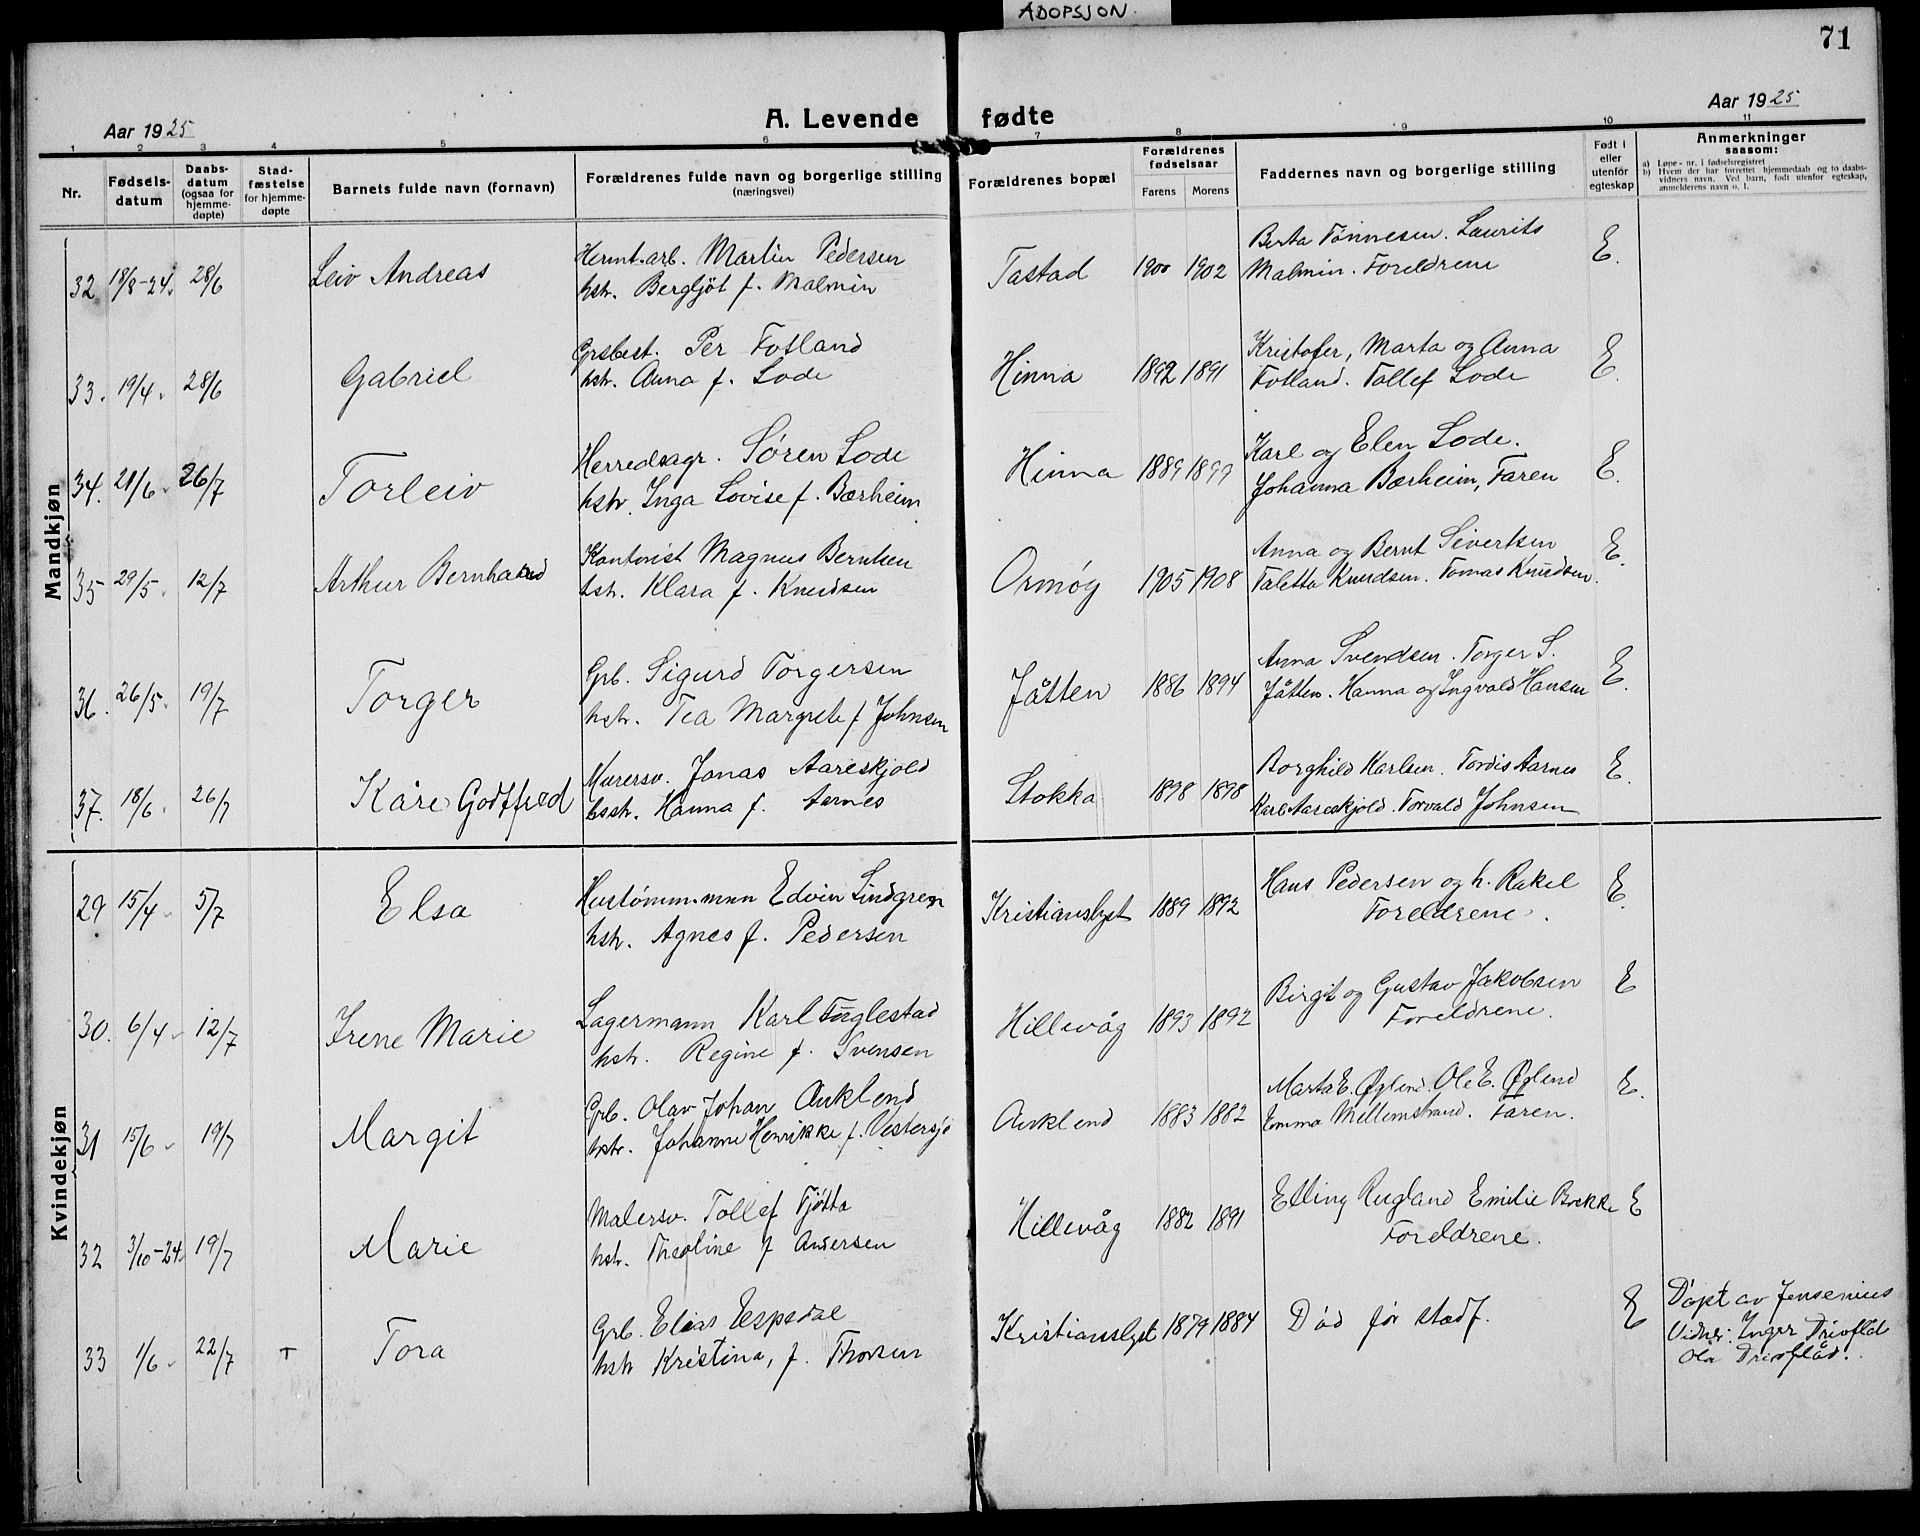 ADOPSJON.
71
Aar 1925
A. Levende fødte
Aar 1925
1 2 3 4 5 6 7 8 9 10 11
Nr.
Fødsels-
datum
Daabs-
datum
(ogsaa for
hjemme-
døpte)
Stad-
fæstelse
for hjemme-
døpte
Barnets fulde navn (fornavn)
Forældrenes fulde navn og borgerlige stilling
(næringsvei)
Forældrenes bopæl
Forældrenes
fødselsaar
Farens Morens
Faddernes navn og borgerlige stilling
Født i
eller
utenfor
egteskap
Anmerkninger
saasom:
a) Løpe-nr. i fødselsregistret
b) Hvem der har forrettet hjemmedaab og to daabs-
vidners navn. Ved barn, født utenfor egteskap,
anmelderens navn o. l.
Mandkjøn
32 18/8-24. 28/6 Leiv Andreas
Hermt.arb. Martin Pedersen
hstr. Bergljot f. Malmin
Tastad 1900 1902
Berta Tønnesen. Laurits
Malmin. Foreldrene
E.
33. 19/4. 28/6 Gabriel
Grsbest. Per Fotland
hstr. Anna f. Lode
Hinna 1892 1891
Kristofer, Marta og Anna
Fotland. Tollef Lode
E.
34. 21/6. 26/7 Torleiv
Herredsagr. Søren Lode
hstr. Inga Lovise f. Bærheim
Hinna 1889 1899
Karl og Elen Lode.
Johanna Bærheim, Faren
E.
35 29/5. 12/7 Arthur Bernhard
Kontorist Magnus Berntsen
hstr. Klara f. Knudsen
Ormøy 1905 1908
Anna og Bernt Sivertsen
Taletta Knudsen. Tomas Knudsen.
E.
36. 26/5. 19/7 Torger
Grb. Sigurd Torgersen
hstr. Tea Margrete f Johnsen
Jåtten 1886 1894
Anna Svendsen. Torger S.
Jåtten. Hanna og Ingvald Hansen
E.
37. 18/6. 26/7 Kåre Godtfred
Murersv. Jonas Aareskjold
hstr. Hanna f. Aarnes
Stokka 1898 1898
Borghild Karlsen. Tordis Aarnes
Karl Aareskjold. Torvald Johnsen
E.
Kvindekjøn
29 15/4. 5/7 Elsa
Hustømm.mnn Edvin Lindgren
hstr. Agnes f. Pedersen
Kristianslyst 1889 1892
Hans Pedersen og h. Rakel
Foreldrene.
E.
30. 6/4. 12/7 Irene Marie
Lagermann Karl Fuglestad
hstr. Regine f. Svensen
Hillevåg 1893 1892
Birgit og Gustav Jakobsen
Foreldrene.
E
31 15/6. 19/7 Margit
Grb. Olav Johan Auklend
hstr. Johanne Henrikke f. Vestersjø
Auklend 1883 1882
Marta E. Øglend. Ole E. Øglend
Emma Mellemstrand. Faren.
E.
32 3/10-24. 19/7 Marie
Malersv. Tollef Tjøtta
hstr. Theoline f Andersen
Hillevåg 1882 1891
Elling Rugland Emilie Brekke
Foreldrene.
E
33 1/6. 22/7 + Tora
Grb. Elias Espedal
hstr Kristina, f. Thorsen
Kristianslyst 1879 1884
Død før stadf.
E
Døpt av Jensenius
Vidner: Inger Drivflåd
Ola Drivflåd.